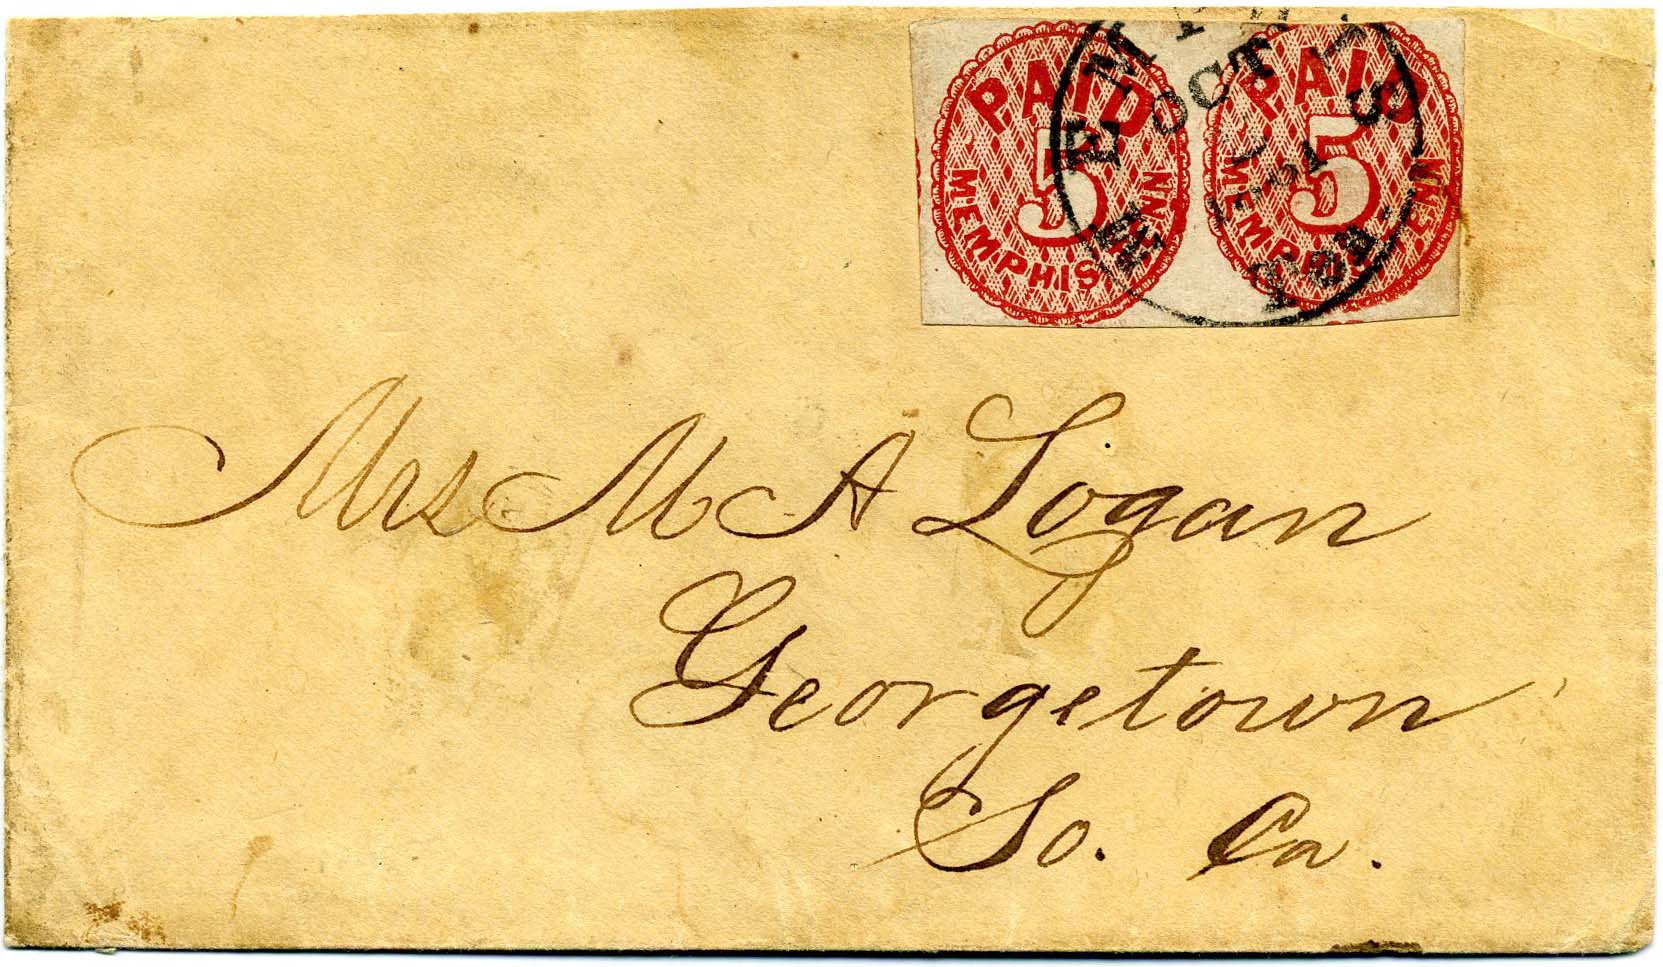 PAID 5 MEMPHIS, TENN.
PAID 5 MEMPHIS, TENN.
MEMPHIS
OCT
Mrs M A Logan
Georgetown
So. Ca.